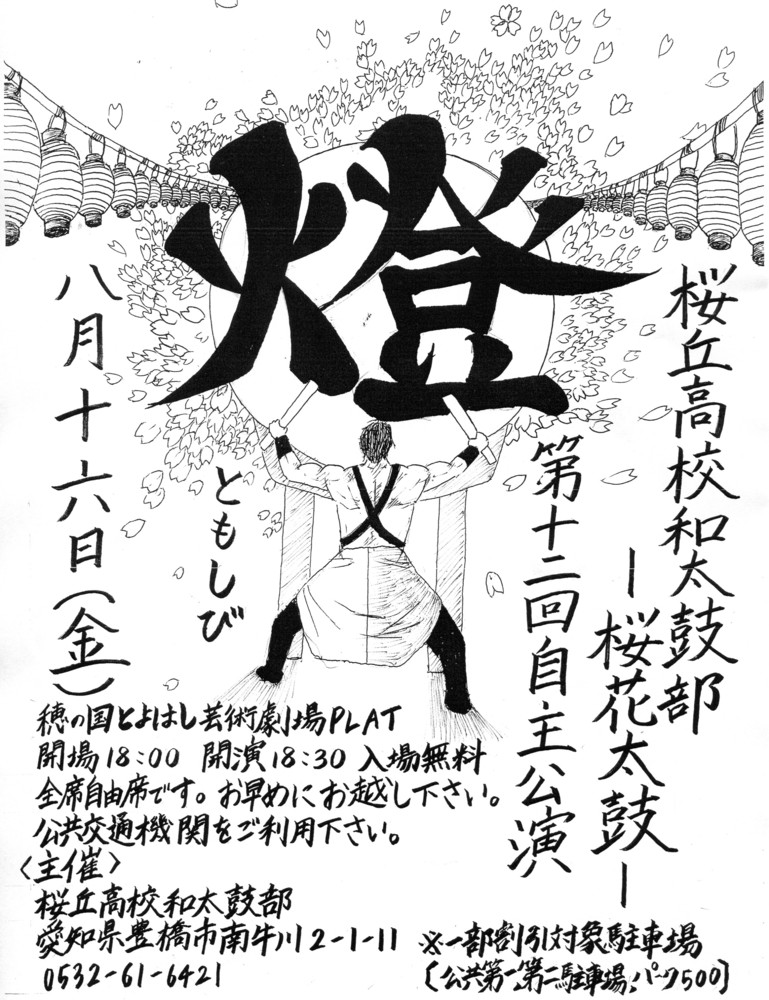 燈
桜丘高校和太鼓部
－桜花太鼓－
第十二回自主公演
ともしび
八月十六日(金)
穂の国とよはし芸術劇場PLAT
開場18:00 開演18:30 入場無料
全席自由席です。お早めにお越し下さい。
公共交通機関をご利用下さい。
〈主催〉
桜丘高校和太鼓部
愛知県豊橋市南牛川2-1-11
0532-61-6421
※一部割引対象駐車場
〔公共第一、第二駐車場、パーク500〕